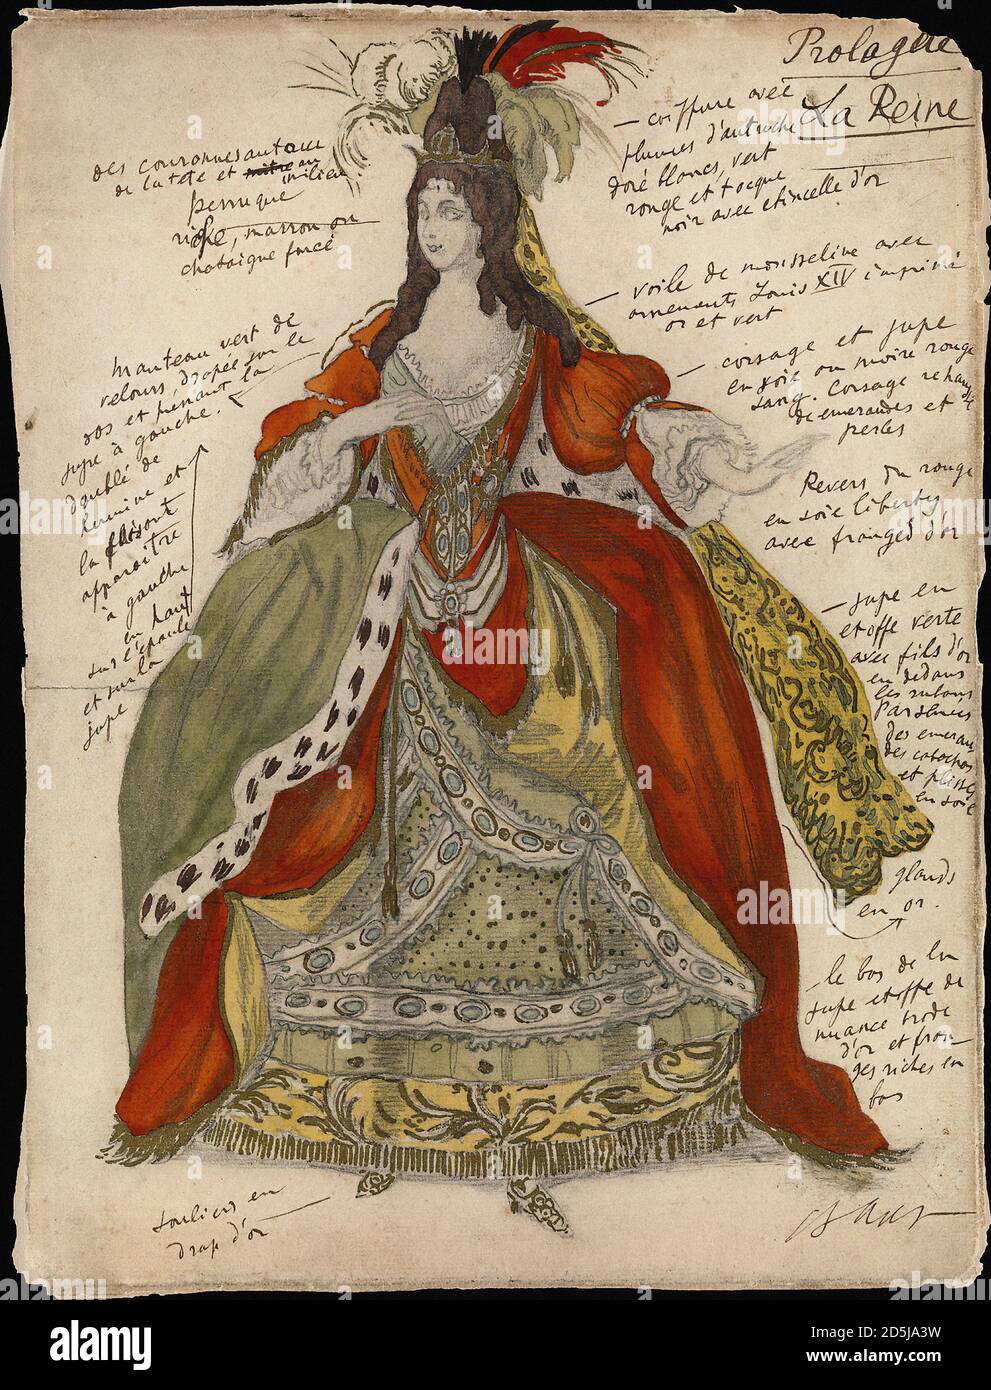 Prologue
La Reine
— coiffure avec
plumes d'autruche
doré blancs, vert
rouge et tocque
noir avec etincelle d'or
— voile de mousseline avec
ornements Louis XIV imprimé
or et vert
— corsage et jupe
en soie ou moire rouge
sang. Corsage rehaussé
d'emeraudes et
perles
Revers du rouge
en soie liberty
avec franges d'or
— jupe en
etoffe verte
avec fils d'or
en dedans
les rubans
Parsemés
des emerau
des cabochons
et plissé
en soie
glands
en or.
— le bas de la
jupe etoffe de
nuance brodé
d'or et fran
ges riches en
bas
des couronnes autour
de la tete et au
milieu
perruque
riche, marron ou
chataigne foncé
manteau vert de
velours drapée sur le
dos et prenant la
jupe à gauche.
doublé de
hermine et
la faisant
apparaitre
à gauche
en haut
sur l'épaule
et sur la
jupe
souliers en
drap d'or
Bakst
alamy
Image ID: 2D5JA3W
www.alamy.com